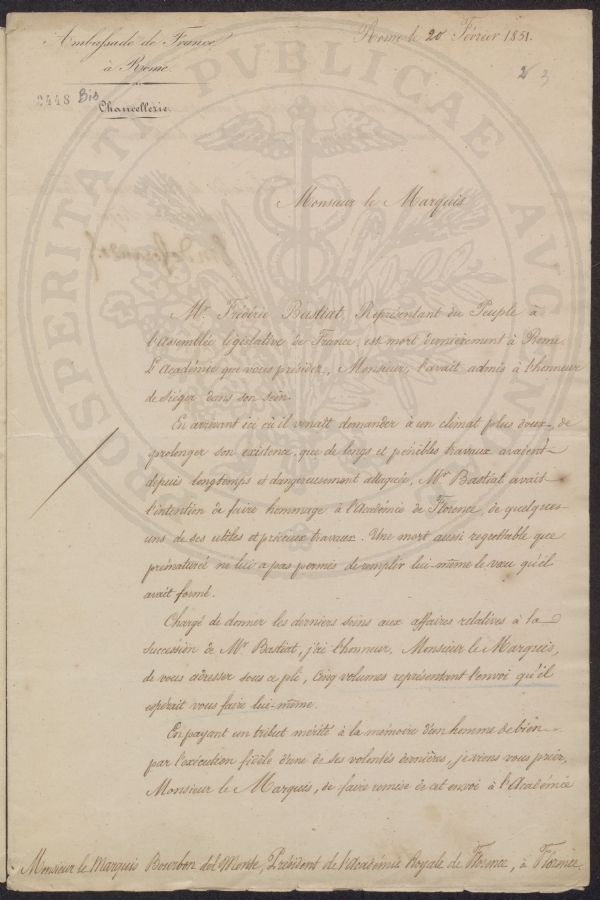 Ambassade de France
à Rome.
Chancellerie.
2448 Bis
Rome le 20 Février 1851.
2 3
Monsieur le Marquis
Mr. Frédéric Bastiat, Représentant du Peuple à
l'Assemblée législative de France, est mort dernièrement à Rome.
L'Académie que vous présidez, Monsieur, l'avait admis à l'honneur
de siéger dans son sein.
En arrivant ici où il venait demander à un climat plus doux, de
prolonger son existence, que de longs et pénibles travaux avaient
depuis longtemps et dangereusement attaquée, Mr. Bastiat avait
l'intention de faire hommage à l'Académie de Florence, de quelques
uns de ses utiles et précieux travaux. Une mort aussi regrettable que
prématurée ne lui a pas permis de remplir lui-même le vœu qu'il
avait formé.
Chargé de donner les derniers soins aux affaires relatives à la
succession de Mr. Bastiat, j'ai l'honneur, Monsieur le Marquis,
de vous adresser sous ce pli, cinq volumes représentant l'envoi qu'il
espérait vous faire lui-même.
En payant un tribut mérité à la mémoire d'un homme de bien
par l'exécution fidèle d'une de ses volontés dernières, je viens vous prier,
Monsieur le Marquis, de faire remise de cet envoi à l'Académie
Monsieur le Marquis Bourbon del Monte, Président de l'Académie Royale de Florence, à Florence.
PROSPERITATI PUBLICAE AUGENDAE